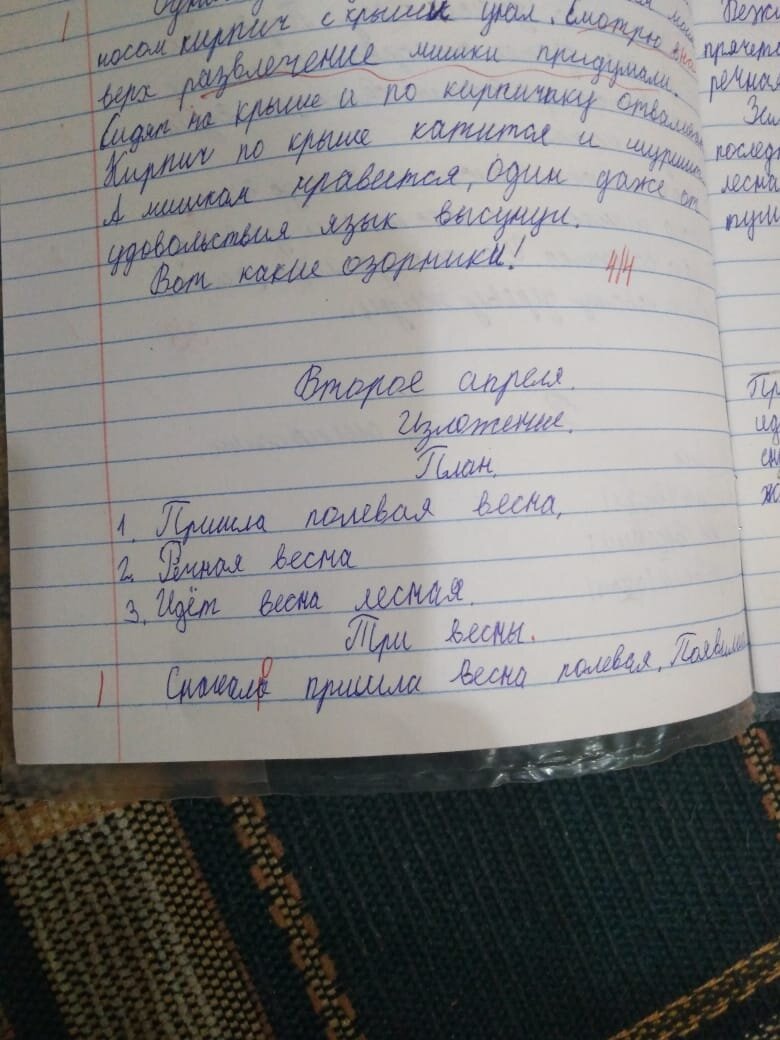 носом кирпич с крыши упал. Смотрю на
верх развлечение мишки придумали.
Сидят на крыше и по кирпичику отвалива
Кирпич по крыше катится и шурши
А мишкам нравится, один даже от
удовольствия язык высунул.
Вот какие озорники!
4/4
Второе апреля.
Изложение.
План.
1. Пришла полевая весна.
2. Речная весна
3. Идёт весна лесная.
Три весны.
1 Сначала пришла весна полевая. Появились
прячет
речная
Зем
послед
лесна
Пр